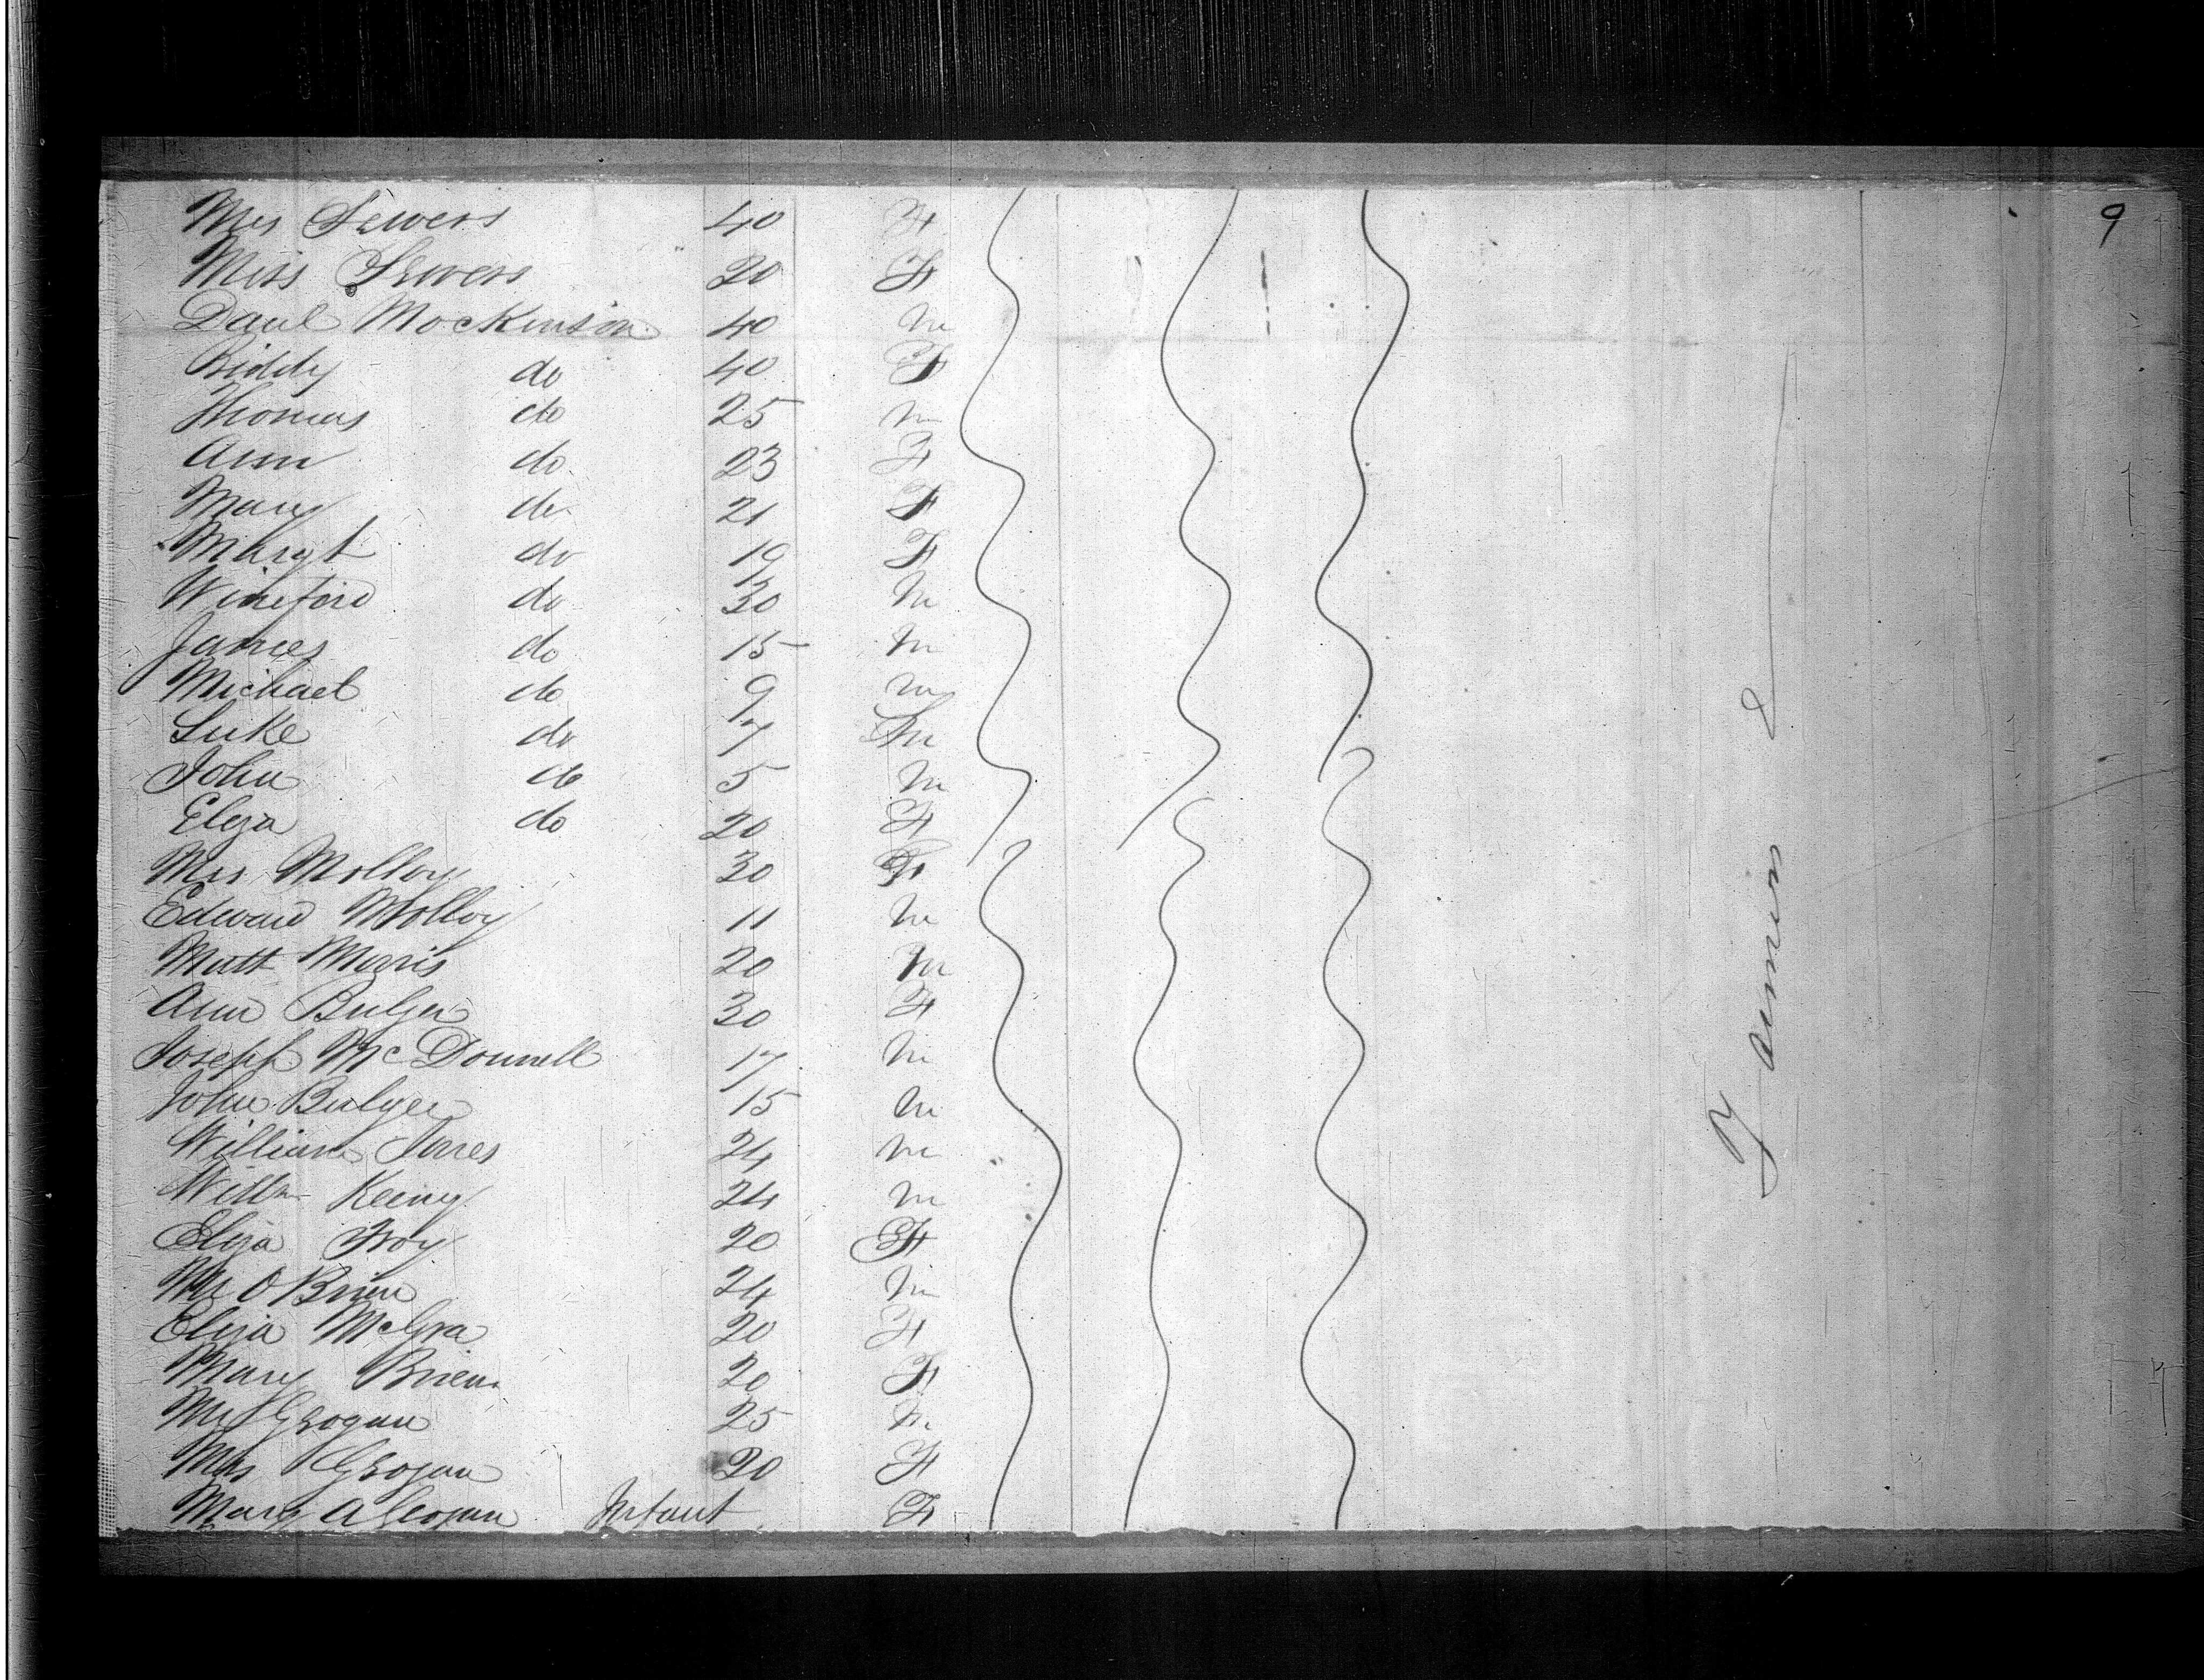 9
Mrs Sewers 40 F
Miss Sewers 20 F
Danl Mockinson 40 m
Biddy do 40 F
Thomas do 25 m
Ann do 23 F
Mary do 21 F
Margt do 19 F
Wineford do 30 m
James do 15 m
Michael do 9 m
Luke do 7 m
John do 5 m
Eliza do 20 F
Mrs Molloy 30 F
Edward Molloy 11 m
Matt Morris 20 m
Ann Bulger 30 F
Joseph McDonnell 17 m
John Bulger 15 m
William Jones 24 m
Willm Keeny 24 m
Eliza Froy 20 F
Mr O Brien 24 m
Eliza McGra 20 F
Mary Brien 20 F
Mr Grogan 25 m
Mrs Grogan 20 F
Mary A Grogan Infant F